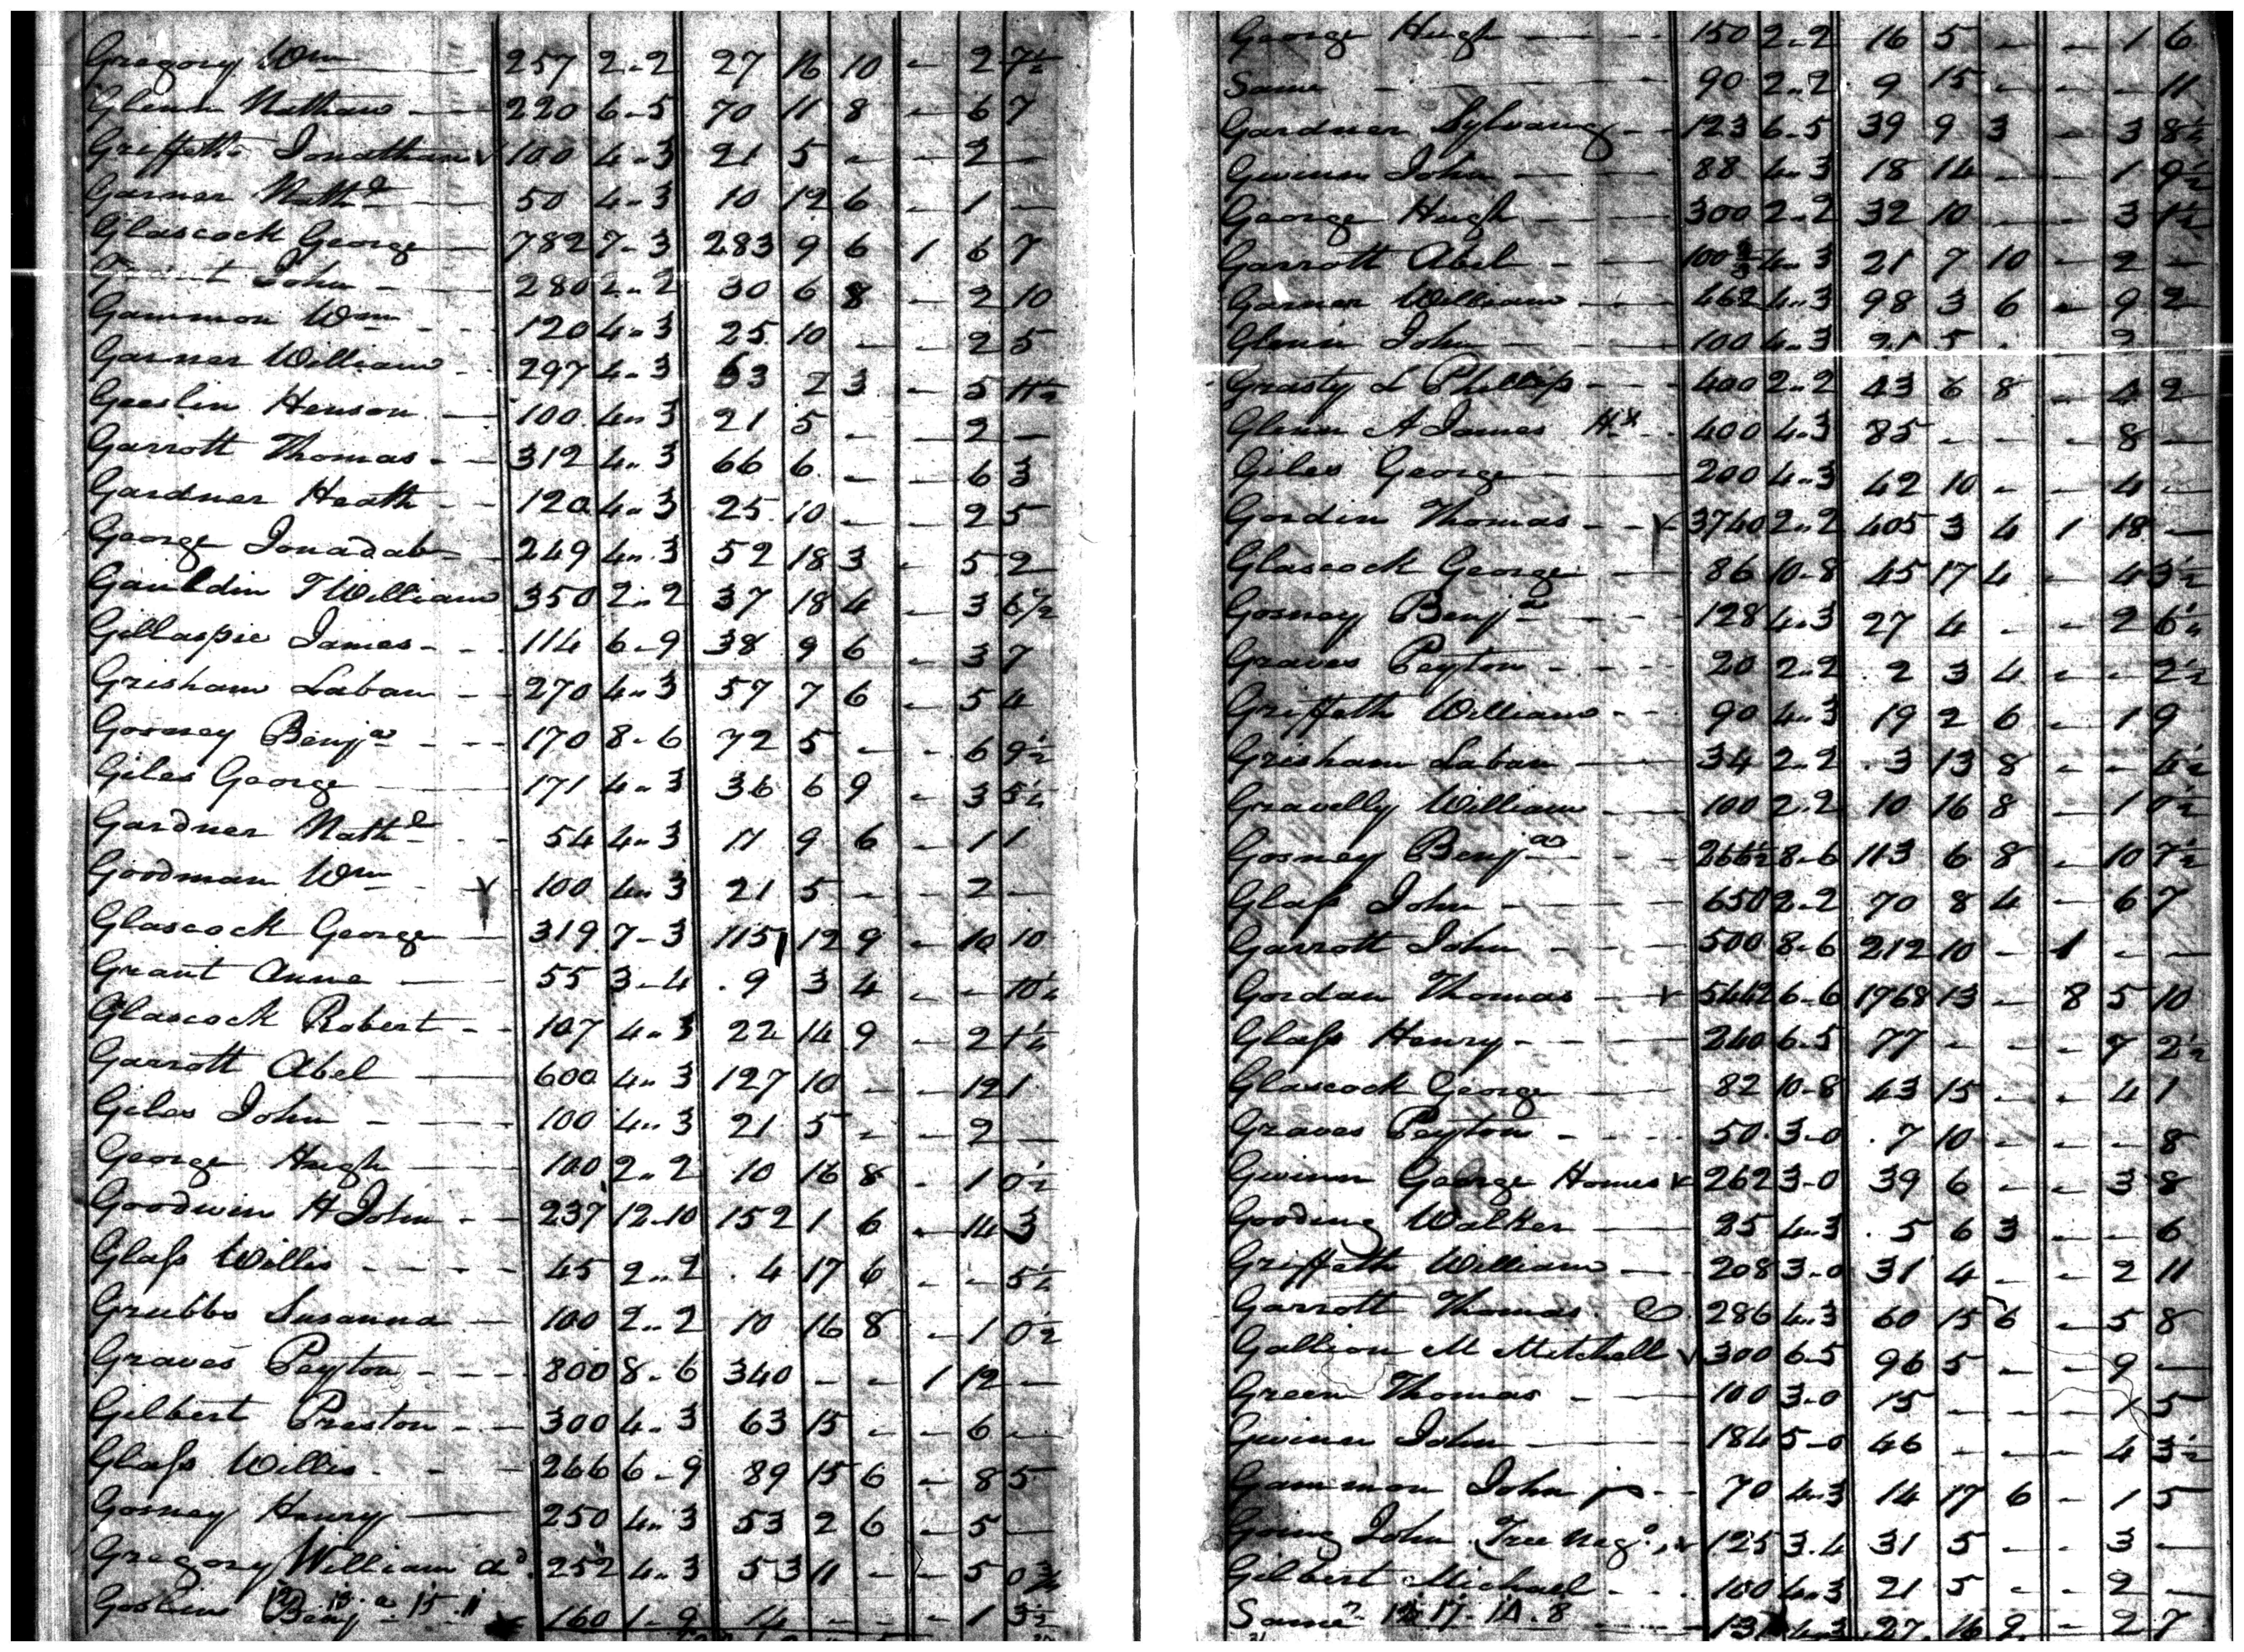 Gregory Wm 257 2-2 27 16 10 - 2 7½
Glenn Nathan 220 6-5 70 11 8 - 6 7
Griffeth Jonathan 100 4-3 21 5 - - 2 -
Garner Nathd 50 4-3 10 12 6 - 1 -
Glascock George 782 7-3 283 9 6 1 6 7
John 280 2-2 30 6 8 - 2 10
Gammon Wm 120 4-3 25 10 - - 2 5
Garner William 297 4-3 63 2 3 - 5 11½
Geeslin Henson 100 4-3 21 5 - - 2 -
Garrott Thomas 312 4-3 66 6 - - 6 3
Gardner Heath 120 4-3 25 10 - - 2 5
George Jonadab 249 4-3 52 18 3 - 5 2
Gauldin T William 350 2-2 37 18 4 - 3 6½
Gillaspie James 114 6-9 38 9 6 - 3 7
Grisham Laban 270 4-3 57 7 6 - 5 4
Gosney Benja 170 8-6 72 5 - - 6 9½
Giles George 171 4-3 36 6 9 - 3 5½
Gardner Nathl 54 4-3 11 9 6 - 1 1
Goodman Wm 100 4-3 21 5 - - 2 -
Glascock George 319 7-3 115 12 9 - 10 10
Grant Anne 55 3-4 9 3 4 - - 10½
Glascock Robert 107 4-3 22 14 9 - 2 1½
Garrott Abel 600 4-3 127 10 - - 12 1
Giles John 100 4-3 21 5 - - 2 -
George Hugh 100 2-2 10 16 8 - 1 0½
Goodwin H John 237 12-10 152 1 6 - 14 3
Glass Willis 45 2-2 4 17 6 - - 5½
Grubbs Susanna 100 2-2 10 16 8 - 1 0½
Graves Peyton 800 8-6 340 - - 1 12 -
Gilbert Preston 300 4-3 63 15 - - 6 -
Glass Willis 266 6-9 89 15 6 - 8 5
Gosney Henry 250 4-3 53 2 6 - 5 -
Gregory William 252 4-3 53 11 - - 5 0¾
Goskins Benj 160 1-9 14 - - - 1 3½
George Hugh 150 2-2 16 5 - - 1 6
Same 90 2-2 9 15 - - - 11
Gardner Sylvanus 123 6-5 39 9 3 - 3 8½
Gwinn John 88 4-3 18 14 - - 1 9½
George Hugh 300 2-2 32 10 - - 3 1½
Garrott Abel 100⅔ 4-3 21 7 10 - 2 -
Garner William 462 4-3 98 3 6 - 9 2
Glenn John 100 4-3 21 5 - - 2 -
Grasty L Phillip 400 2-2 43 6 8 - 4 2
Glenn A James Hx 400 4-3 85 - - - 8 -
Giles George 200 4-3 42 10 - - 4 -
Gordin Thomas 3740 2-2 405 3 4 1 18 -
Glascock George 86 10-8 45 17 4 - 4 3½
Gosney Benja 128 4-3 27 4 - - 2 6½
Graves Peyton 20 2-2 2 3 4 - - 2½
Griffeth William 90 4-3 19 2 6 - 1 9
Grisham Laban 34 2-2 3 13 8 - - 4½
Gravelly William 100 2-2 10 16 8 - 1 0½
Gosney Benja 266½ 8-6 113 6 8 - 10 7½
Glass John 650 2-2 70 8 4 - 6 7
Garrott John 500 8-6 212 10 - 1 - -
Gordan Thomas 5442 6-6 1768 13 - 8 5 10
Glass Henry 240 6-5 77 - - - 7 2½
Glascock George 82 10-8 43 15 - - 4 1
Graves Peyton 50 3-0 7 10 - - - 8
Gwinn George Homes 262 3-0 39 6 - - 3 8
Gooding Walker 25 4-3 5 6 3 - - 6
Griffeth William 208 3-0 31 4 - - 2 11
Garrott Thomas 286 4-3 60 15 6 - 5 8
Gallion M Mitchell 300 6-5 96 5 - - 9 -
Green Thomas 100 3-0 15 - - - 1 5
Gwinn John 184 5-0 46 - - - 4 3½
Gammon John jr 70 4-3 14 17 6 - 1 5
Going John Free Nego 125 3-4 31 5 - - 3 -
Gilbert Michael 100 4-3 21 5 - - 2 -
Same 4-3 27 16 9 - 2 7